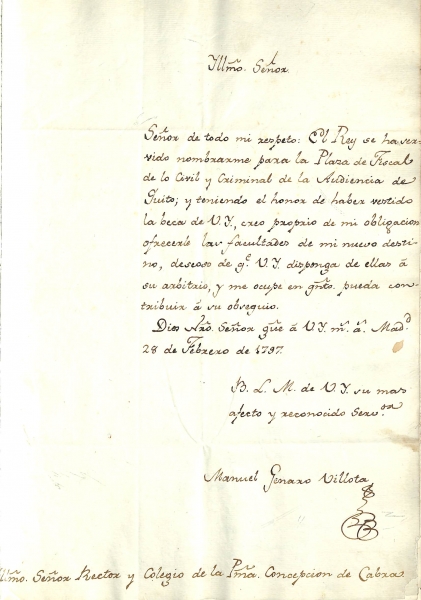 Yllm̃o. Señor.
Señor de todo mi respeto: El Rey se ha ser-
vido nombrarme para la Plaza de Fiscal
de lo Civil y Criminal de la Audiencia de
Quito; y teniendo el honor de haber vestido
la beca de V.Y., creo proprio de mi obligacion
ofrecerle las facultades de mi nuevo desti-
no, deseoso de q.e V.Y. disponga de ellas á
su arbitrio, y me ocupe en q̃nto. pueda con-
tribuir á su obsequio.
Dios Nr̃o. Señor gũe á V.Y. m.s a.s Mad.d
28 de Febrero de 1797.
B. L. M. de V.Y. su mas
afecto y reconocido Serv.or
Manuel Genaro Villota
Yllm̃o. Señor Rector y Colegio de la Pm̃a. Concepcion de Cabra